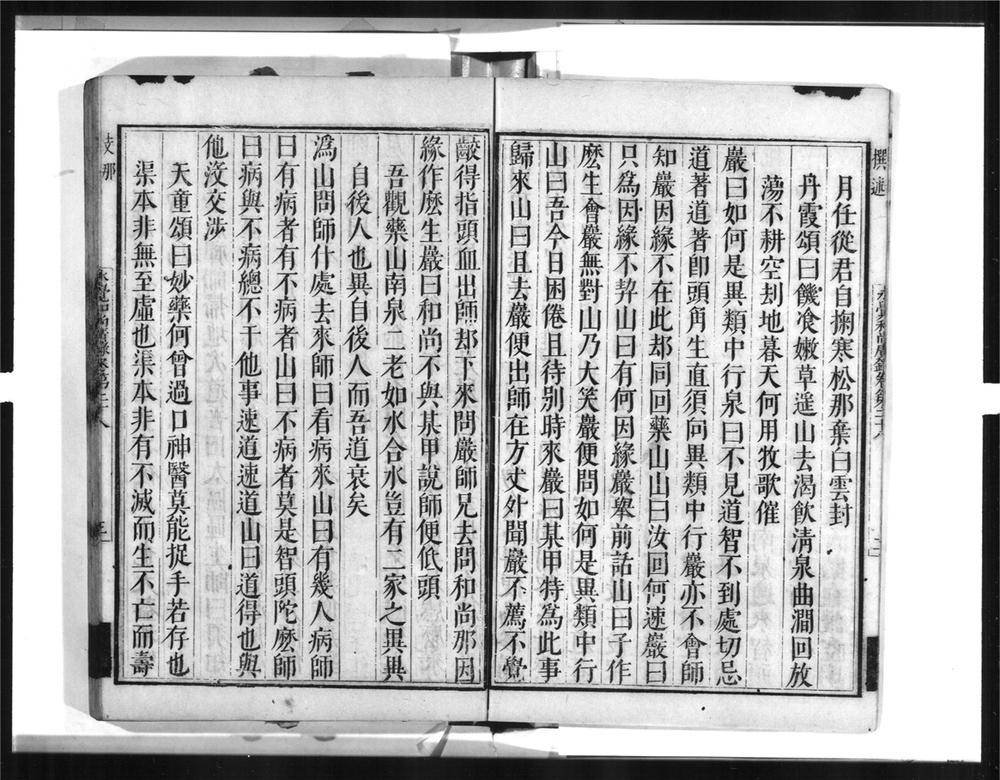 月任從君自掬寒松那棄白雲封
丹霞頌曰饑飡嫩草遥山去渴飲清泉曲澗回放
蕩不耕空刦地暮天何用牧歌催
嚴曰如何是異類中行泉曰不見道智不到處切忌
道著道著卽頭角生直須向異類中行嚴亦不會師
知嚴因緣不在此却同回藥山山曰汝回何速嚴曰
只爲因緣不契山曰有何因緣嚴舉前話山曰子作
麽生會嚴無對山乃大笑嚴便問如何是異類中行
山曰吾今日困倦且待别時來嚴曰某甲特爲此事
歸來山曰且去嚴便出師在方丈外聞嚴不薦不覺
齩得指頭血出師却下來問嚴師兄去問和尚那因
緣作麽生嚴曰和尚不與某甲說師便低頭
吾觀藥山南泉二老如水合水豈有二家之異異
自後人也異自後人而吾道衰矣
潙山問師什處去來師曰看病來山曰有幾人病師
曰有病者有不病者山曰不病者莫是智頭陀麽師
曰病與不病總不干他事速道速道山曰道得也與
他没交涉
天童頌曰妙藥何曾過口神醫莫能捉手若存也
渠本非無至虛也渠本非有不滅而生不亡而壽